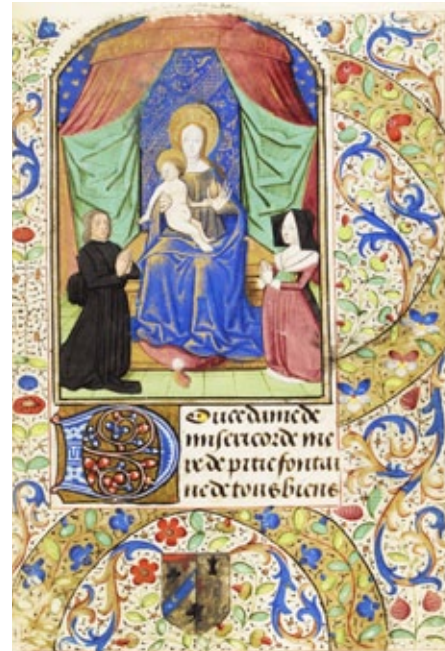 Doucedamede
misericorde me
re de pitie fontai
ne de tous biens